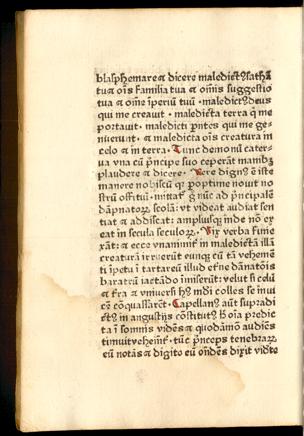 blasphemare ⁊ dicere maledictꝰ sathā
tua oīs familia tua ⁊ oīnis suggestio
tua ⁊ oīne īperiū tuū · maledictꝰ deus
qui me creauit · maledicta terra q̄ me
portauit · maledicti pr̄ntes qui me ge-
nuerunt · ⁊ maledicta oīs creatura in
celo ⁊ in terra · Tunc demonū cater-
ua vna cū pͥncipe suo ceperāt manibꝫ
plaudere ⁊ dicere · Vere dignꝰ ē iste
manere nobiscū qꝛ poptime nouit no
strū offitiū · mittatᷣ g̊ nūc ad pͥncipalē
dāpnatoꝝ scolā: vt videat audiat sen
tiat ⁊ addiscat: ampliusqꝫ inde nō ex
eat in secula seculoꝝ · Vix verba finie
rāt: ⁊ ecce vnanimitᷣ in maledictā illā
creaturā irruerūt eunqꝫ cū tā vehemē
ti īpetu ī tartareū illud eterne dānatōis
baratrū iactādo īmiserūt: velut si celū
⁊ terra ⁊ vniuersi hꝰ mōi colles se inui
cē cōquassarēt · Capellanꝰ aūt supradi
ctꝰ in angustijs cōstitutꝰ hͦ oīa predic
ta ī somnis vidēs ⁊ quodāmō audiēs
timuit vehemētᷣ · tūc pͥnceps tenebraꝝ
eū notās ⁊ digito eū ondēs dixit vidēte